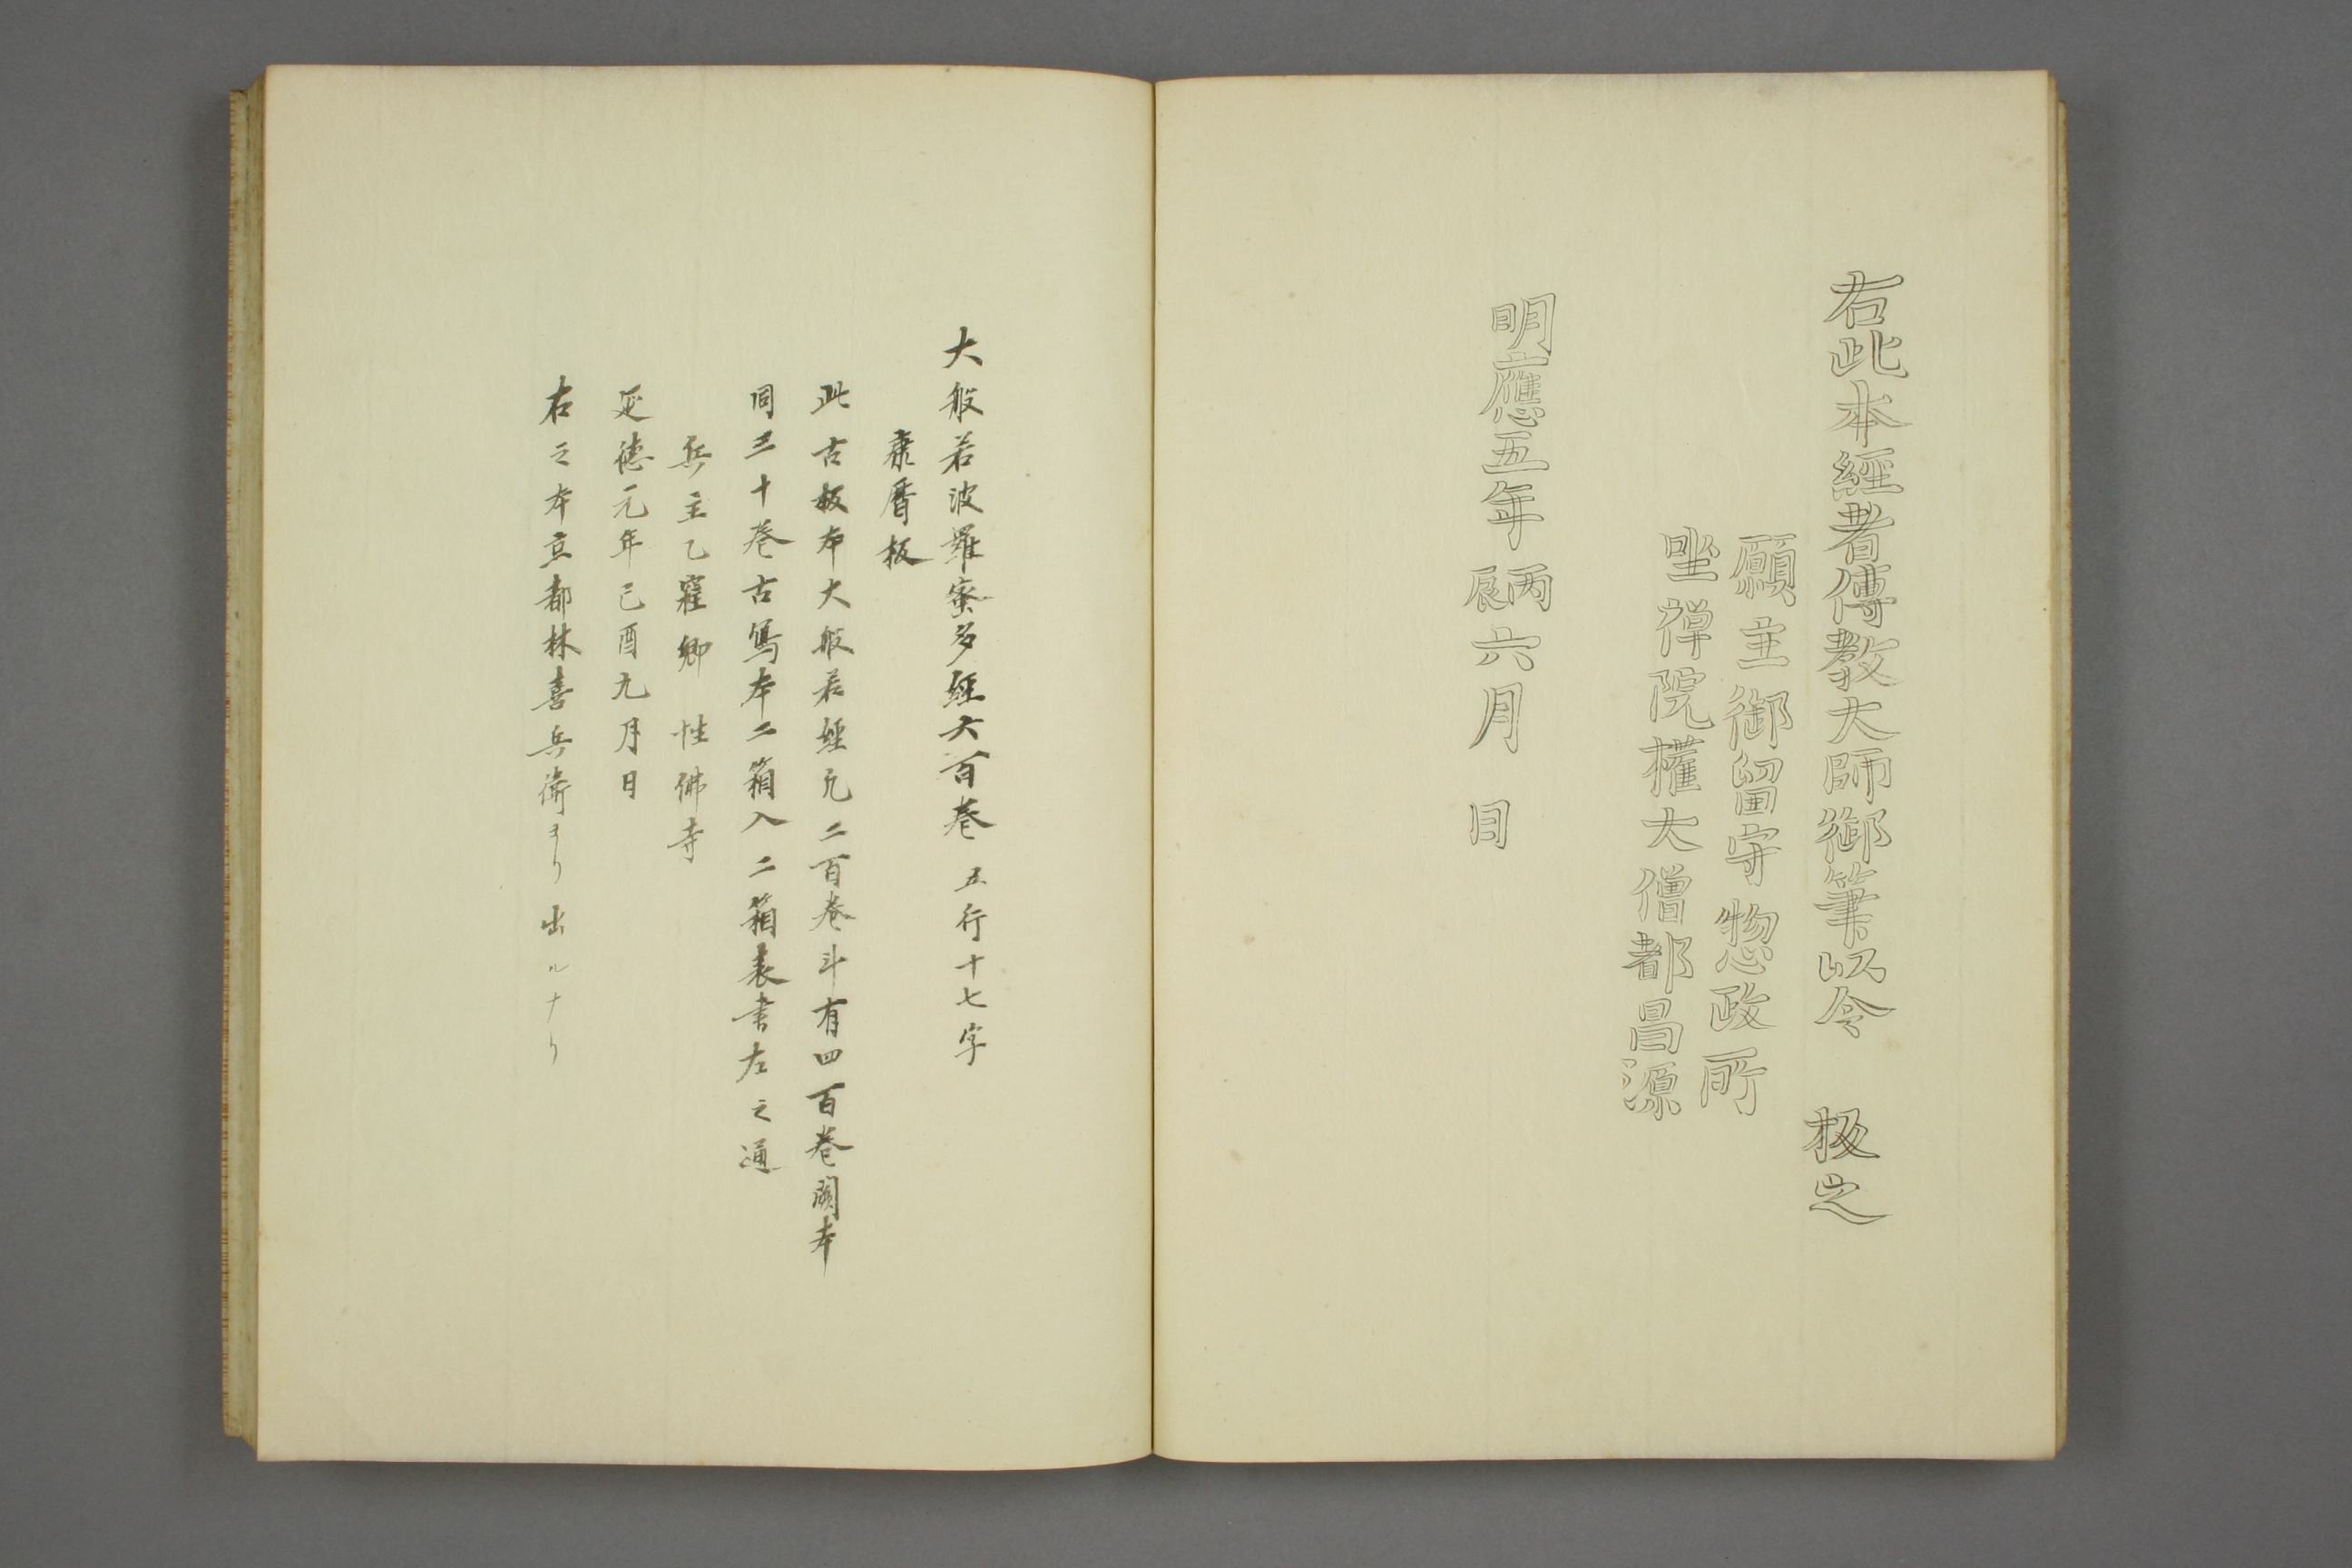 右此本經者傳教大師御筆以令　板之
願主御留守惣政所
坐禅院權大僧都昌源
明應五年丙辰六月　日
大般若波羅蜜多經六百巻　五行十七字
康暦板
此古板本大般若經凡二百巻斗有四百巻闕本
同三十巻古寫本二箱入二箱裏書左之通
兵主乙窪郷　性佛寺
延德元年己酉九月日
右之本京都林喜兵衛ヨリ出ルナリ